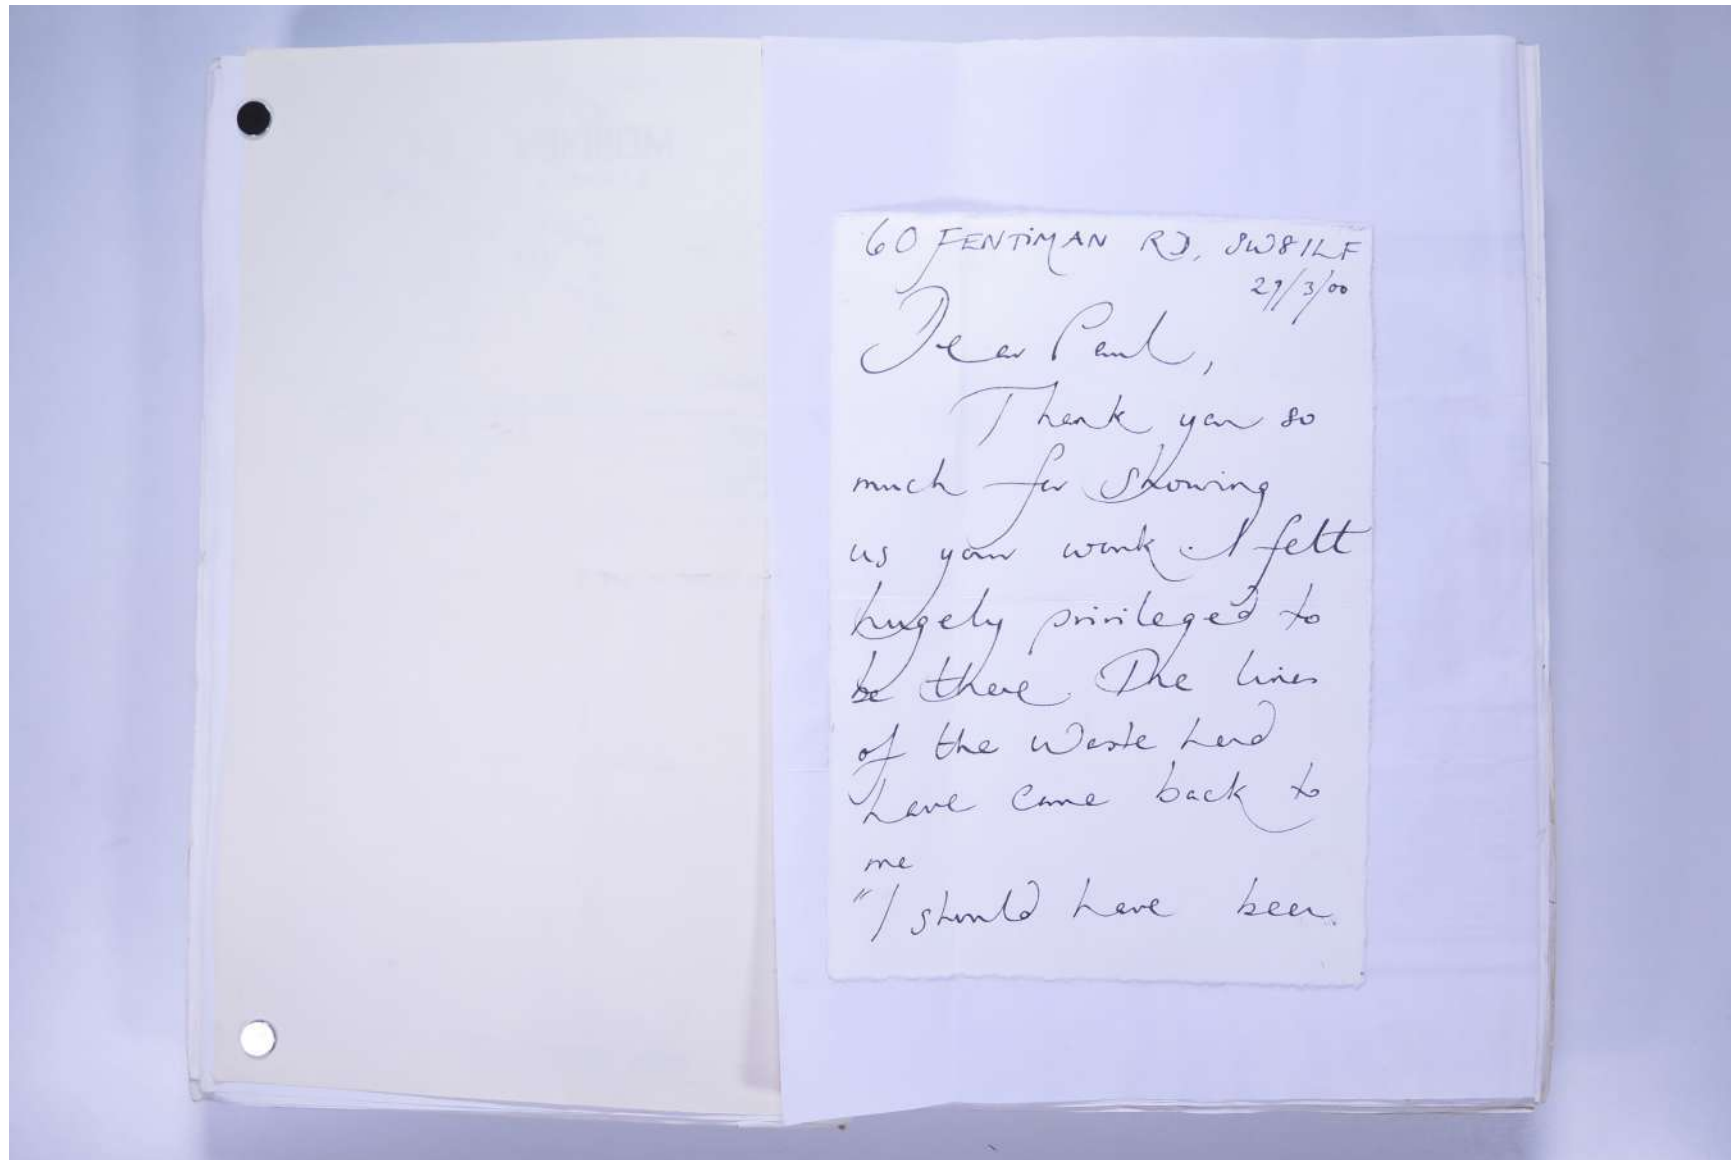 60 FENTIMAN RD, SW8 1LF
29/3/00
Dear Paul,
Thank you so
much for showing
us your work. I felt
hugely privileged to
be there. The lines
of the Waste Land
have come back to
me
"I should have been